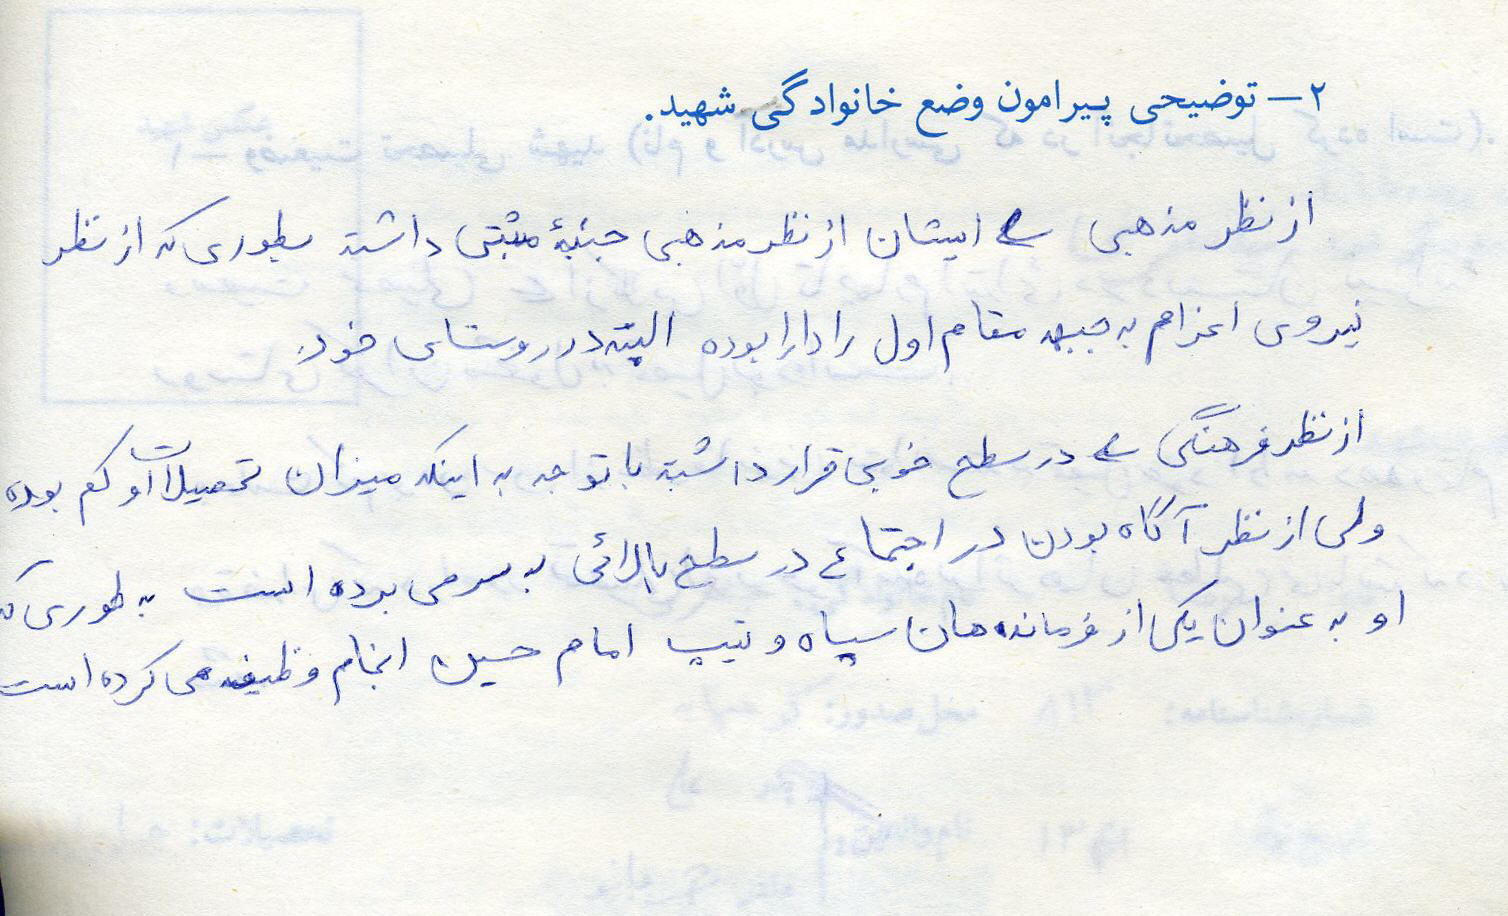 ۲ – توضیحی پیرامون وضع خانوادگی شهید.
از نظر مذهبی ــ ایشان از نظر مذهبی جنبهٔ مثبتی داشته بطوری که از نظر
نیروی اعزام به جبهه مقام اول را دارا بوده البته در روستای خود.
از نظر فرهنگی ــ در سطح خوبی قرار داشته با توجه به اینکه میزان تحصیلات او کم بوده
ولی از نظر آگاه بودن در اجتماع در سطح بالائی به سر می برده است به طوری که
او به عنوان یکی از فرمانده هان سپاه و تیپ امام حسین انجام وظیفه می کرده است